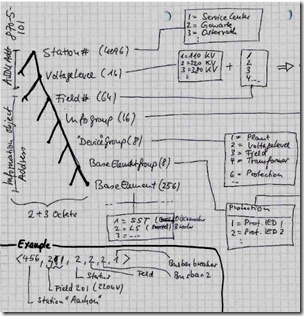 870-5-
101
ASDU Addr
Information Object
Address
Station# (4096)
Voltagelevel (16)
Field# (64)
Infogroup (16)
"Device"Group (8)
BaseElementgroup (8)
BaseElement (256)
2+3 Octets
1 = Service Center
2 = Gowerk
3 = Osterrath
1=110 KV
2=220 KV
3=380 KV
+
1
2
3
4
1 = Plant
2 = Voltagelevel
3 = Field
4 = Transformer
6 = Protection
Protection
1 = Prot. IED 1
2 = Prot. IED 2
1 = SST
2 = LS
Example
<456, 201, 2, 2, 2, 1>
Busbarbreaker
Busbar 2
Feld
Status
Field 201 (220kV)
Station "Aachen"